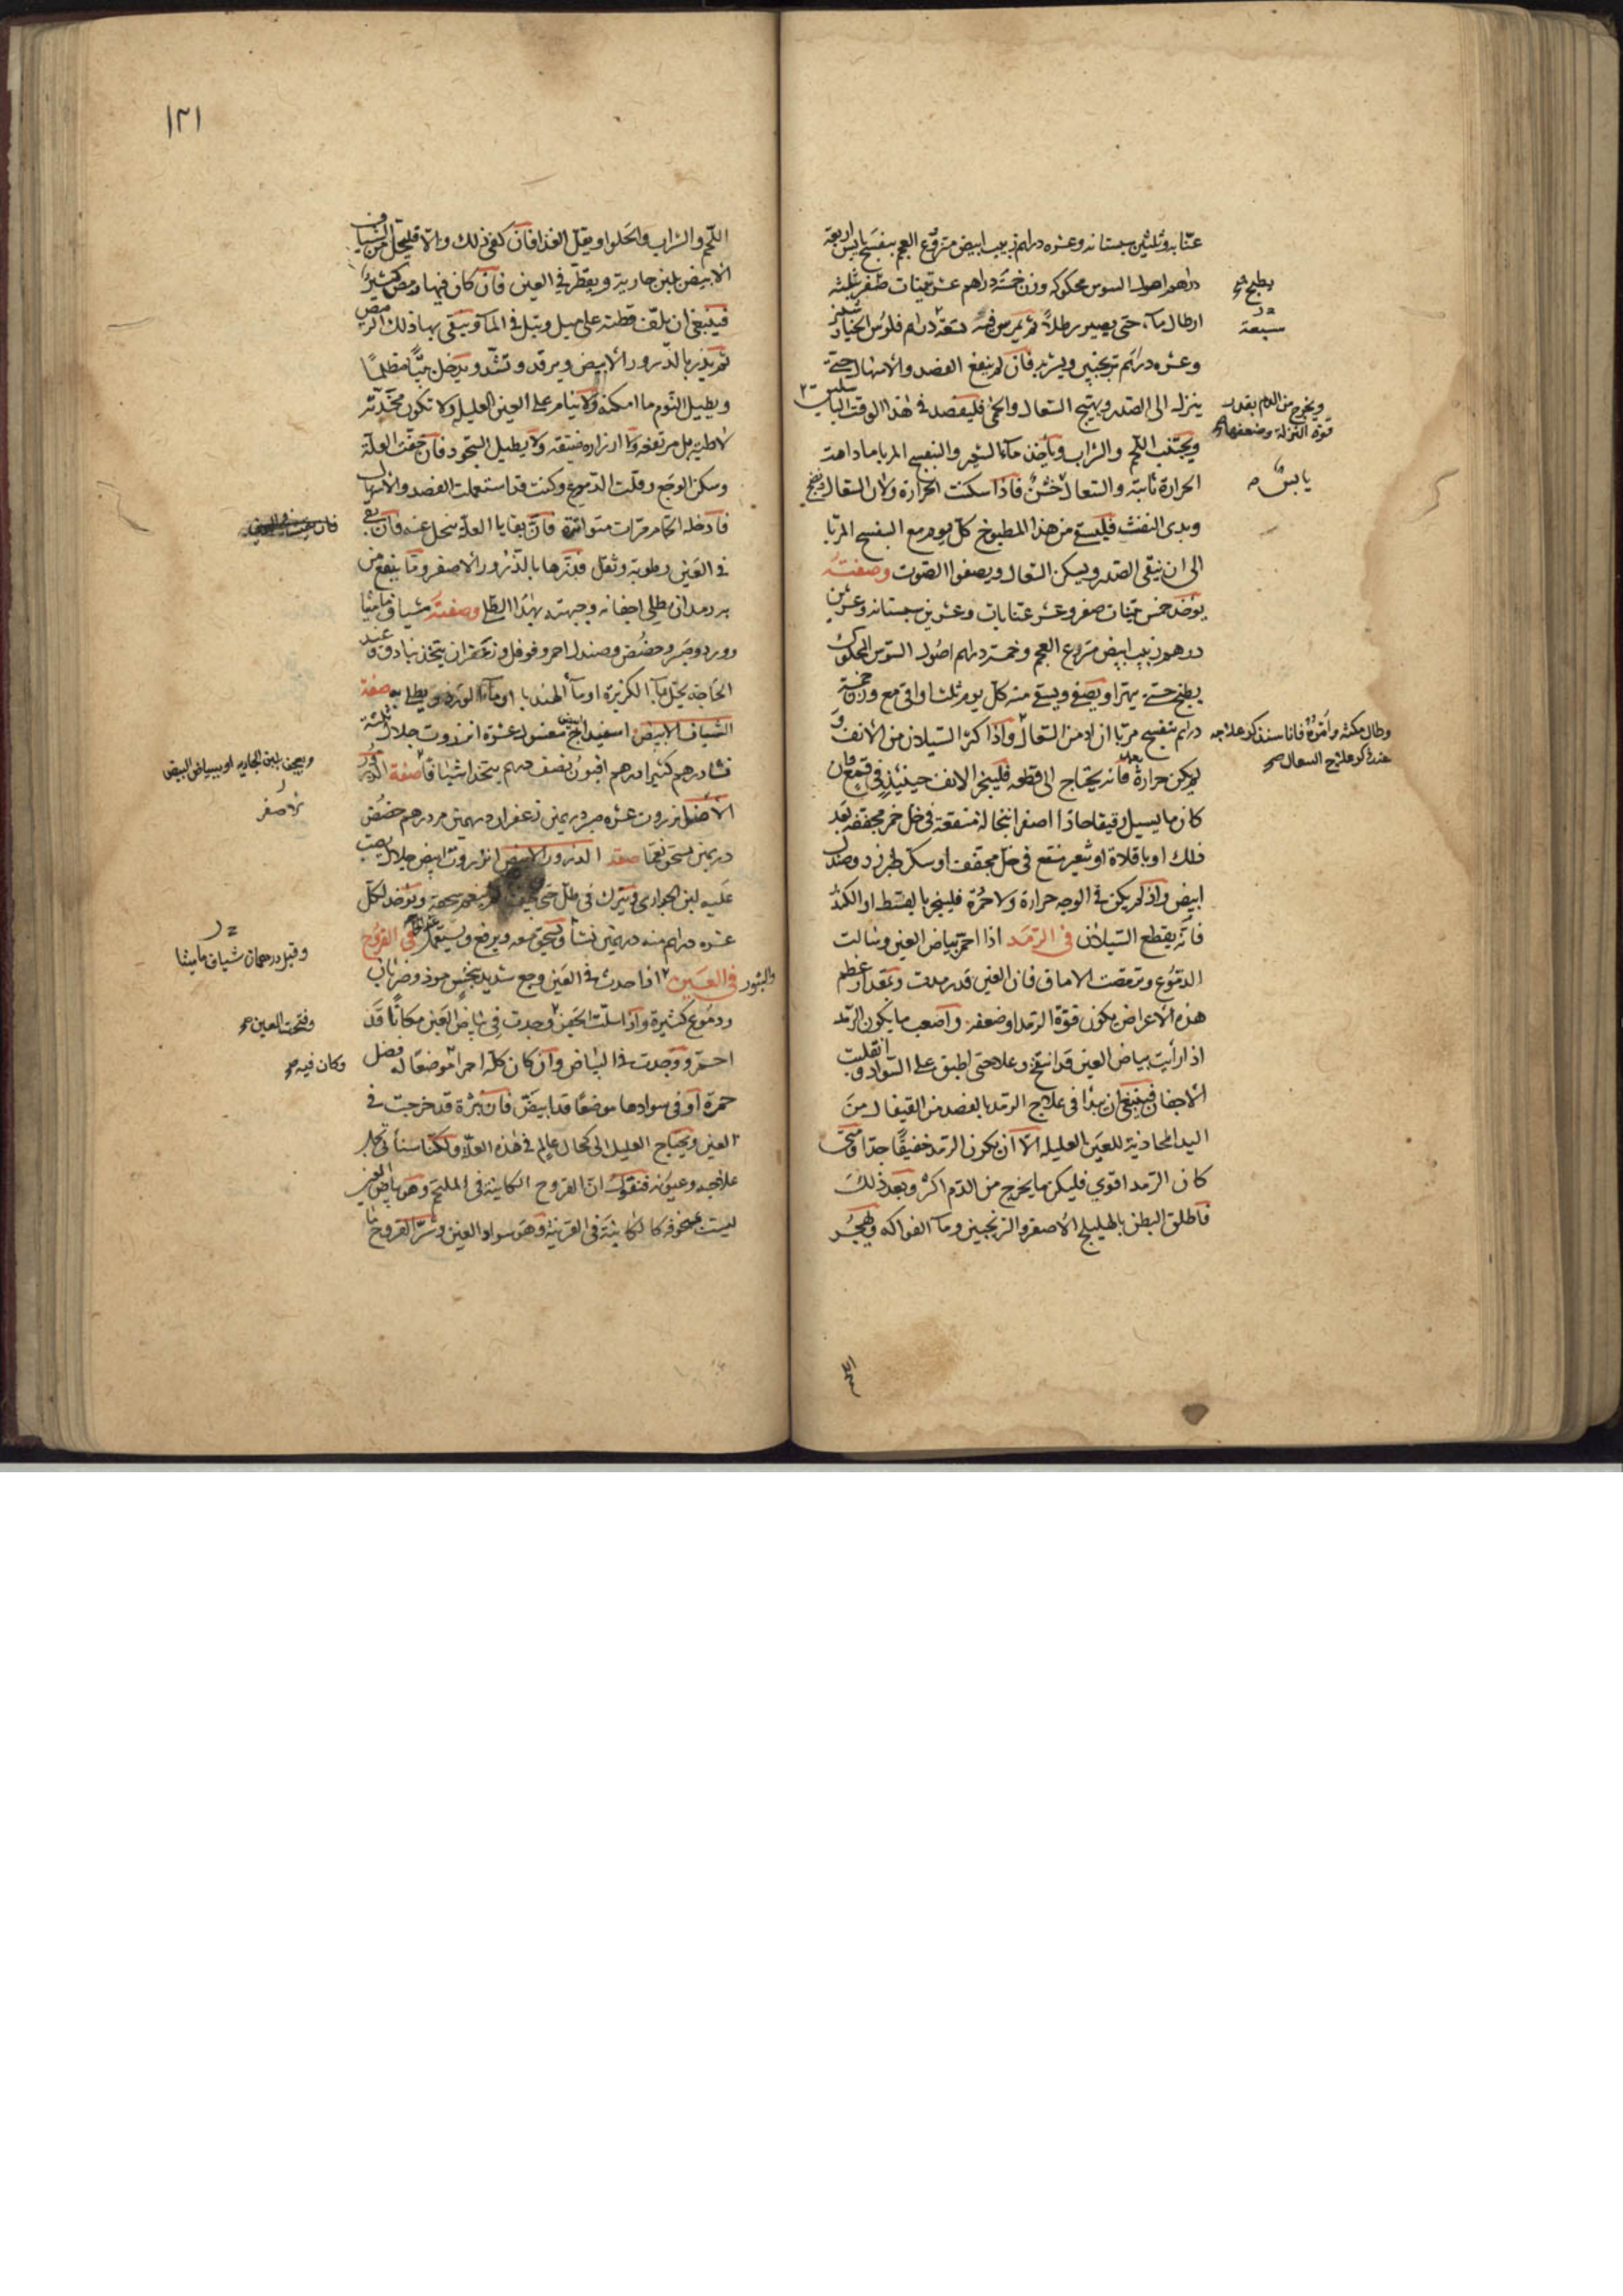 عنابه وثلثين سبستانه وعشره دراهم زبيب ابيض منزوع العجم بنفسج يابس اربعة
دراهم اصول السوس محكوكه وزن خمسة دراهم عشر تينات صفر ثلثة
ارطال مآء حتى يصير رطلاً ثم يمرس فيه سبعة دراهم فلوس الخيار شنبر
وعشره دراهم ترنجبين ويشربه فان لم ينفع الفصد والاسهال حتى
ينزله الى الصدر ويهيج السعال والحمى فليفصد في هذا الوقت الباسليق
ويجتنب اللحم والشراب وياخذ مآء الشعير والبنفسج المربا ما دامت
الحرارة ثابتة والسعال خشن فاذا سكنت الحرارة ولان السعال ونضج
وبدى النفث فليسق من هذا المطبوخ كل يوم مع البنفسج المربا
الى ان ينقى الصدر ويسكن السعال ويصفوا الصوت وصفته
يؤخذ خمس تينات صفر وعشر عنابات وعشرين سبستانه وعشرين
درهم زبيب ابيض منزوع العجم وخمسة دراهم اصول السوس المحكوك
يطبخ حتى يتهرا ويصفى ويسقى منه كل يوم ثلث اواقي مع وزن خمسة
دراهم بنفسج مربا ان ادمن السعال واذا كثر السيلان من الانف و
لم يكن حرارة فانه يحتاج الى قطعه فليبخر الانف حينئذ في قمع فان
كان ما يسيل رقيقا حادا اصفر ا بنخالة منقعة في خل خمر مجففه بعد
ذلك او باقلاة او شعير منقع في خل مجفف او سكر طبرزد وصندل
ابيض واذ لم يكن في الوجه حرارة ولا حمرة فليبخر بالقسط او الكندر
فانه يقطع السيلان في الرمد اذا احمر بياض العين وسالت
الدموع ورمصت الاماق فان العين قد رمدت وبمقدار عظم
هذه الاعراض يكون قوة الرمد او ضعفه واصعب ما يكون الرمد
اذا رأيت بياض العين قد انتفخ وعلا حتى اطبق على السواد وانقلبت
الاجفان فينبغى ان يبدا في علاج الرمد بالفصد من القيفال من
اليد المحاذية للعين العليله الا ان يكون الرمد خفيفا جدا ومتى
كان الرمد اقوي فليكن ما يخرج من الدم اكثر وبعد ذلك
فاطلق البطن بالهليلج الاصفر والترنجبين ومآء الفواكه ويهجر
يطبخ صح
سبعة
ويخرج من الدم بقدر
قوة النزلة وضعفها صح
يابس
وطال مكثه وأثره فانا سنذكر علاجه
عند ذكر علاج السعال صح
١٢١
اللحم والشراب والحلوا ويقل الغذا فان كفى ذلك والا فليحل من الشياف
الابيض بلبن جارية ويقطر في العين فان كان فيها رمص كثير
فينبغى ان يلف قطنه على ميل ويبل في المآء وينقى بها ذلك الرمص
ثم يذر بالذرور الابيض ويرقد وتشد ويدخل بيتا مظلما
ويطيل النوم ما امكنه ولا ينام على العين العليله ولا تكون مخدته
لاطيه بل مرتفعه ولا ازراره ضيقه ولا يطيل السجود فان خفت العلة
وسكن الوجع وقلت الدموع وكنت قد استعملت الفصد والاسهال
فادخله الحمام مرات متواترة فان بقايا العلة ينحل عنه فان بقى
في العين رطوبة وثقل فذرها بالذرور الاصفر ومما ينفع من
به رمد ان يطلى اجفانه وجبهته بهذا الطلا وصفته شياف ماميثا
وورد وصبر وحضض وصندل احمر وفوفل وزعفران يتخذ بنادق وعند
الحاجه يحل بمآء الكزبرة او مآء الهندبا او مآء الورد ويطلا به صفة
الشياف الابيض اسفيداج مغسول عشرة انزروت جلال ثلثة
نشا درهم كثيرا درهم افيون نصف درهم يتخذ اشيافا صفة الذرور
الاصفر انزروت عشره صبر درهمين زعفران درهمين مر درهم حضض
درهمين يسحق نعما صفة الذرور الابيض انزروت ابيض جلال يصب
عليه لبن الجوارى ويترك في ظل حتى يجف ثم ينعم سحقه ويؤخذ لكل
عشره دراهم منه درهمين نشا ويسحق معه ويرفع ويستعمل في القروح
والبثور في العين اذا حدث في العين وجع شديد بنخس موذ وضربان
ودموع كثيرة واذا سلت الجفن وجدت في بياض العين مكانا قد
احمر ووجدت في البياض وان كان كله احمر اموضعا له فضل
حمرة او في سوادها موضعا قد ابيض فان بثرة قد خرجت في
العين ويحتاج العليل الى كحال عالم في هذه العلة ولكنا سناتي بجمل
علاجه وعيونه فنقول ان القروح الكاينة في الملتحم وهو بياض العين
ليست بمخوفه كالكاينة في القرنية وهو سواد العين وشر القروح ما
ويعجن بلبن الجاريه او ببياض البيض
الاصفر
وقيل درهمان شياف ماميثا
وفتحت العين صح
وكان فيه صح